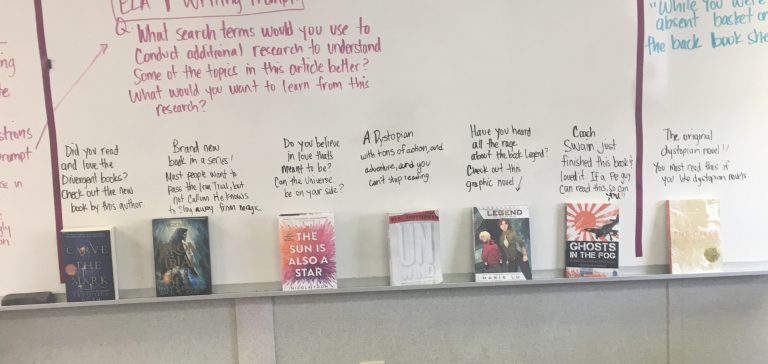 ELA Writing Prompt
Q: What search terms would you use to
Conduct additional research to understand
Some of the topics in this article better?
What would you want to learn from this
research?
"While you were
absent basket on
the back book she
Did you read
and love the
Divergent books?
Check out the new
book by this author
Brand new
book in a series!
Most people want to
Pass the Iron Trial, but
not Callum. He knows
to Stay away from magic.
Do you believe
in love that's
meant to be?
Can the Universe
be on your side?
A Dystopian
with tons of action, and
adventure, and you
Can't stop reading
Have you heard
all the rage
about the book Legend?
Check out this
graphic novel!
Coach
Swain just
finished this book &
loved it. If a PE guy
Can read this, so can
you!!
The original
dystopian novel!!
You must read this if
you like dystopian novels
CARVE
THE
MARK
THE SUN
IS ALSO A
STAR
NICOLA YOON
UN
WIND
LEGEND
MARIE LU
GHOSTS
IN THE FOG
THE GIVER